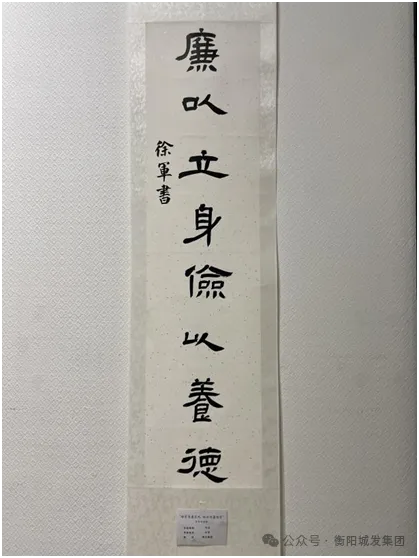 廉以立身儉以養德
徐軍書
公众号·衡阳城发集团